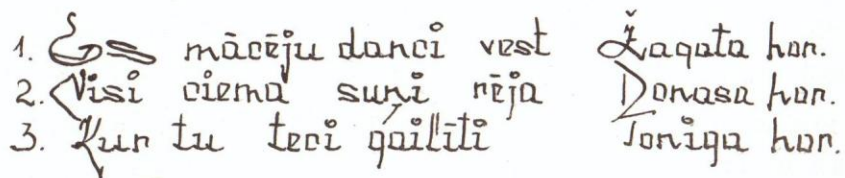 1. Es mācēju danci vest Žagata hor.
2. Visi ciema suņi rēja Donasa hor.
3. Kur tu teci gailīti Toniga hor.